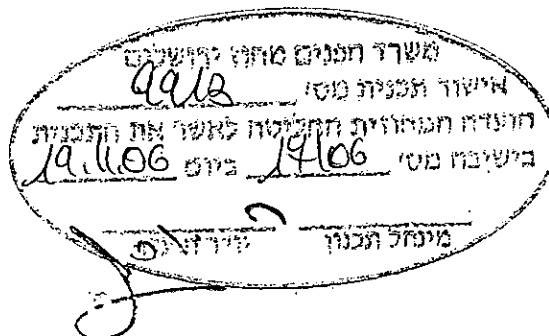 משרד הפנים מחוז ירושלים
אישור תכנית מס' 9912
הועדה המחוזית החליטה לאשר את התכנית
בישיבה מס' 17/06 ביום 19.11.06
מינהל תכנון יו"ר